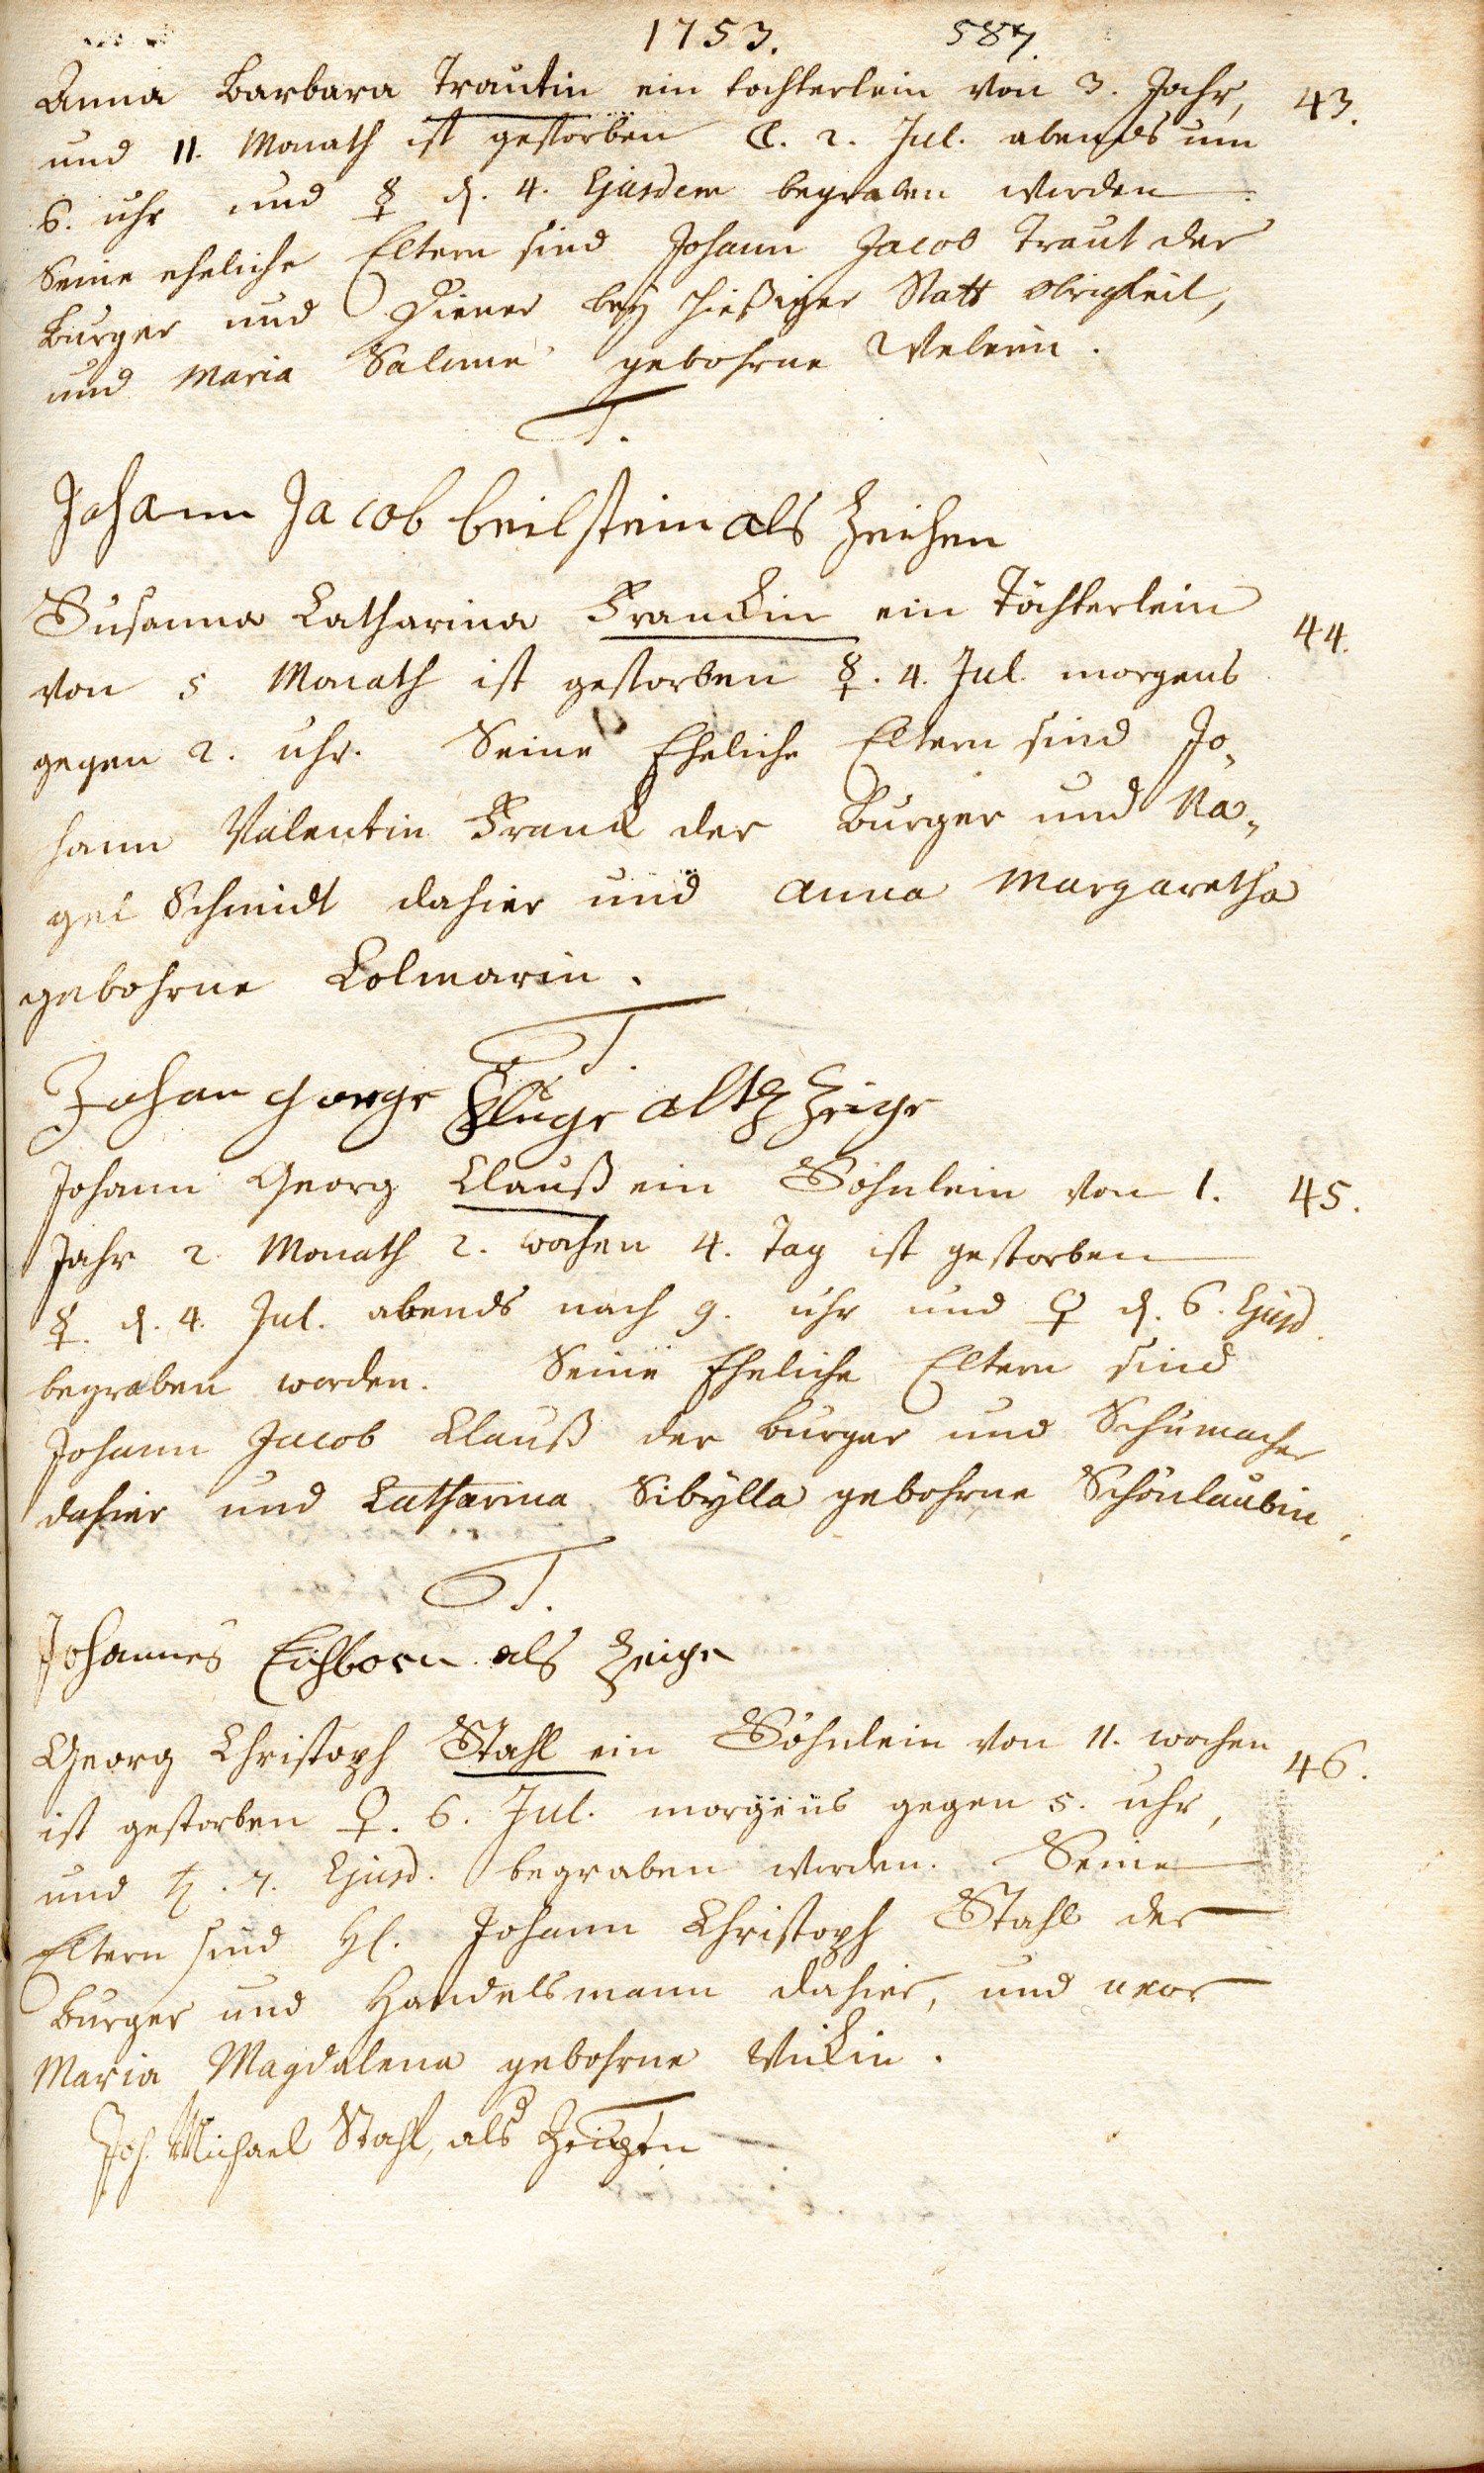 1753. 587.
Anna Barbara Trautin ein tochterlein von 3. Jahr, 43.
und 11. Monath ist gestorben ☾. 2. Jul. abends um
6. uhr und ☿ d. 4. Ejusdem begraben worden.
Seine eheliche Eltern sind Johann Jacob Traut der
Burger und Diener bey hießiger Statt Obrigkeit,
und Maria Salome gebohrne
T.
Johann Jacob beilstein als Zeichen
Susanna Catharina Franckin ein Töchterlein 44.
von 5 Monath ist gestorben ☿. 4. Jul. morgens
gegen 2. uhr. Seine Eheliche Eltern sind Jo„
hann Valentin Franck der Burger und Na„
gel Schmidt dahier und Anna Margaretha
gebohrne Colmarin.
T.
Johan george Kluge altz Zeige
Johann Georg Clauß ein Söhnlein von 1. 45.
Jahr 2 Monath 2. wochen 4. Tag ist gestorben
☿. d. 4. Jul. abends nach 9. uhr und ♀ d. 6. Ejusd.
begraben worden. Seine Eheliche Eltern sind
Johann Jacob Clauß der burger und Schumacher
dahier und Catharina Sibÿlla gebohrne Schönlaubin.
T.
Johannes Eichborn als Zeige
Georg Christoph Stahl ein Söhnlein von 11. wochen 46.
ist gestorben ♀. 6. Jul. morgens gegen 5. uhr,
und ♄. 7. Ejusd. begraben worden. Seine
Eltern sind Hl. Johann Christoph Stahl der
burger und Handelsmann dahier, und uxor
Maria Magdalena gebohrne
T
Joh. Michael Stahl, als Zeugen